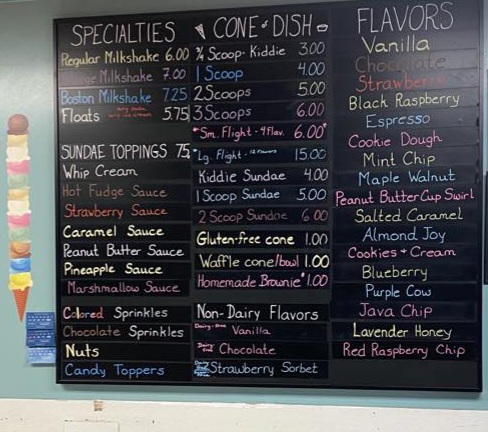 SPECIALTIES
Regular Milkshake 6.00
Milkshake 7.00
Boston Milkshake 7.25
Floats 5.75
SUNDAE TOPPINGS 75
Whip Cream
Hot Fudge Sauce
Strawberry Sauce
Caramel Sauce
Peanut Butter Sauce
Pineapple Sauce
Marshmallow Sauce
Colored Sprinkles
Chocolate Sprinkles
Nuts
Candy Toppers
CONE or DISH
3/4 Scoop - Kiddie 3.00
1 Scoop 4.00
2 Scoops 5.00
3 Scoops 6.00
*Sm. Flight - 4 flav. 6.00*
*Lg. Flight - 12 flavors 15.00
Kiddie Sundae 4.00
1 Scoop Sundae 5.00
2 Scoop Sundae 6.00
Gluten-free cone 1.00
Waffle cone/bowl 1.00
Homemade Brownie* 1.00
Non-Dairy Flavors
Vanilla
Chocolate
Strawberry Sorbet
FLAVORS
Vanilla
Chocolate
Strawberry
Black Raspberry
Espresso
Cookie Dough
Mint Chip
Maple Walnut
Peanut Butter Cup Swirl
Salted Caramel
Almond Joy
Cookies + Cream
Blueberry
Purple Cow
Java Chip
Lavender Honey
Red Raspberry Chip